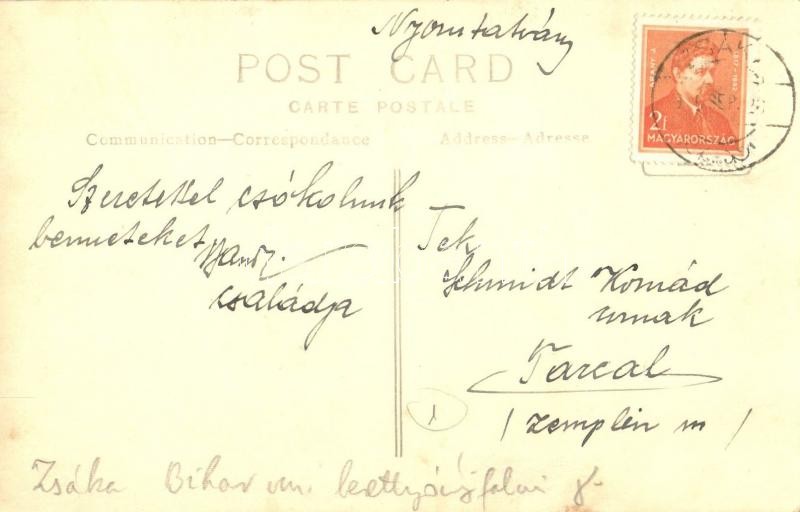 Nyomtatvány
POST CARD
CARTE POSTALE
Communication—Correspondance
Address—Adresse
ARANY J.
1817-1882
2f
MAGYARORSZÁG
ZSÁKA
Szeretettel csókolunk
benneteket
családja
Tek
Schmidt Konrád
urnak
Tarcal
(Zemplén m)
1
Zsáka Bihar vm. berettyóújfalui j.